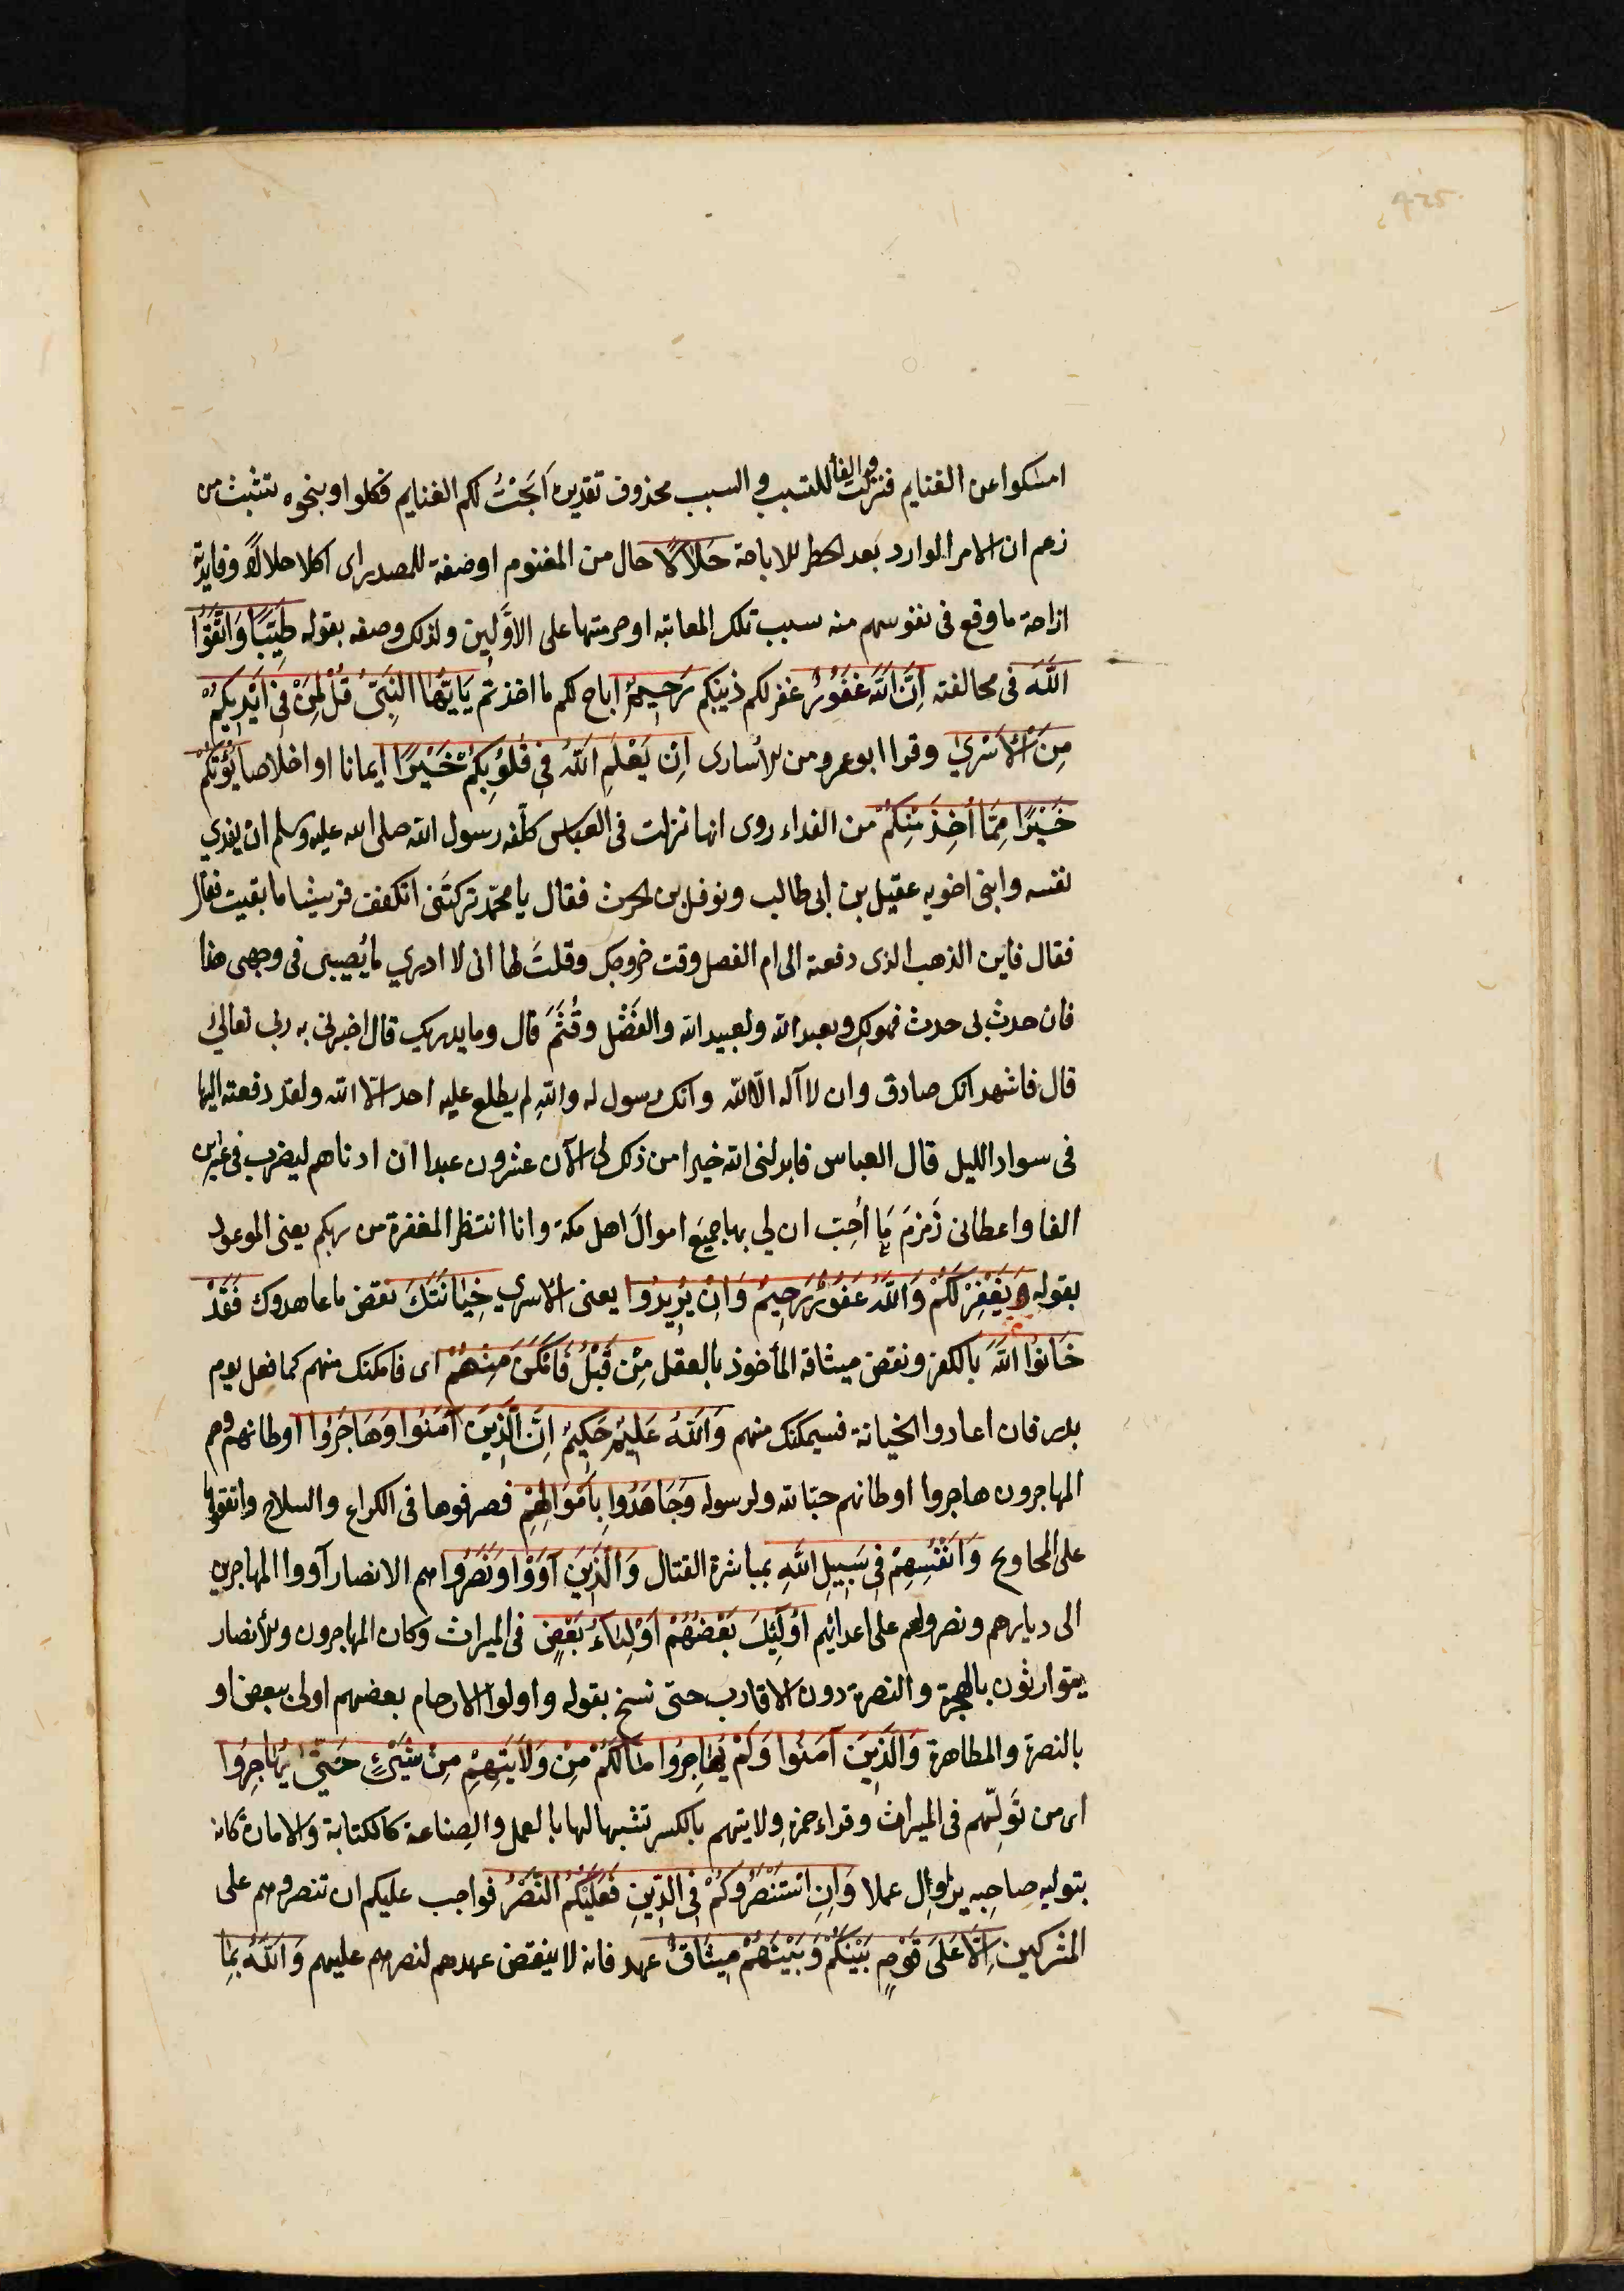 425
امسكوا عن الغنايم فنزلت والفا للتسبب والسبب محذوف تقديره اَبَحْتُ لكم الغنايم فكلوا وبنحوه تشبث من
زعم ان الامر الوارد بَعد الحظر للاباحة حَلاَلاً حال من المغنوم او صفة للمصدر اى اكلا حلالاً وفايدته
ازاحة ما وقع فى نفوسهم منه بسبب تلك المعاتبه او حرمتها على الاَوَّلِين ولذلك وصفه بقوله طَيِّبًا وَاتَّقُوا
اللّٰهَ فى مخالفته اِنَّ اللّٰهَ غَفُوْرٌ غفر لكم ذنبكم رَحِيمٌ اباح لكم ما اخذتم يَايُّهَا النَّبِىُّ قُلْ لِمَنْ فِى اَيْدِيكُمْ
مِنَ الْاَسْرٰي وقرا ابو عمرو من الأسارى اِنْ يَعْلَمِ اللّٰهُ فِى قُلُوْبِكُمْ خَيْرًا ايمانا او اخلاصا يُؤْتِكُمْ
خَيْرًا مِمَّا اُخِذَ مِنكُمْ من الفداء روى انها نزلت فى العباس كلّفه رسول الله صلى الله عليه وسلم ان يفدي
نفسه وابنى اخويه عقيل بن ابى طالب ونوفل بن الحرث فقال يا محمّد تركتَنى اتكفف قريشا ما بقيت فقال
فقال فاين الذهب الذى دفعته الى ام الفصل وقت خروجك وقلتَ لها انى لا ادري ما يُصيبنى فى وجهى هذا
فان حدث بى حدث فهو لكِ ولعبد الله ولعبيد الله والفَضْل وقُثَمَ قال وما يدريك قال اخبرنى به ربى تعالى
قال فاشهد انك صادق وان لا آله الّا الله وانك رسول له واللهِ لم يطلع عليه احد الّا الله ولقد دفعته اليها
فى سواد الليل قال العباس فابدلنى الله خيرا من ذلك لى الآن عشرون عبدا ان ادناهم ليضرب فى عشرين
الفا واعطانى زَمزمَ مَا أُحِبّ ان لي بها جميَع اموالَ اهل مكة وانا انتظر المغفرة من ربكم يعنى الموعود
بقوله وَيَغْفِرْ لَكُمْ وَاللّٰهُ غَفُوْرٌ رَحِيمٌ وَاِنْ يُرِيدُوا يعنى الاسري خِيَانَتَكَ نقض ما عاهدوك فَقَدْ
خَانُوا اللّٰهَ بالكفر ونقض ميثاقه المأخوذ بالعقل مِنْ قَبْلُ فَاَمْكَنَ مِنْهُمْ اى فامكنك منهم كما فعل يوم
بدر فان اعادوا الخيانة فسيمكنك منهم وَاللّٰهُ عَلِيْمٌ حَكِيمٌ اِنَّ الَّذِينَ آمَنُوا وَهَاجَرُوا اوطانهم وهم
المهاجرون هاجروا اوطانهم حبّا لله ولرسوله وَجَاهَدُوا بِاَمْوَالِهِمْ فصرفوها فى الكراع والسلاح وانفقوها
على المحاويج وَاَنْفُسِهِمْ فِى سَبِيلِ اللّٰهِ بمباشرة القتال وَالَّذِينَ آوَوْا وَنَصَرُوا هم الانصار آووا المهاجرين
الى ديارهم ونصروهم على اعدائهم اُولٰئِكَ بَعْضُهُمْ اَوْلِيَاءُ بَعْضٍ فى الميراث وكان المهاجرون والأنصار
يتوارثون بالهجرة والنصرة دون الاقارب حتى نسخ بقوله واولوا الارحام بعضهم اولى ببعض او
بالنصرة والمظاهرة وَالَّذِينَ آمَنُوا وَلَمْ يُهَاجِرُوا مَا لَكُمْ مِنْ وَلَايَتِهِمْ مِنْ شَيْءٍ حَتّٰى يُهَاجِرُوا
اى من تَوَلّيهم فى الميراث وقراء حمزه وِلايتهم بالكسر تشبيها لها بالعمل والصِناعة كالكتابة والامارة كانه
بتوليه صاحِبه يزاوِل عملا وَاِنِ اسْتَنْصَرُوكُمْ فِى الدِّينِ فَعَلَيْكُمُ النَّصْرُ فواجب عليكم ان تنصروهم على
المشركين اِلَّا عَلٰى قَوْمٍ بَيْنَكُمْ وَبَيْنَهُمْ مِيثَاقٌ عهد فانه لا ينقض عهدهم لنصرهم عليهم وَاللّٰهُ بِمَا